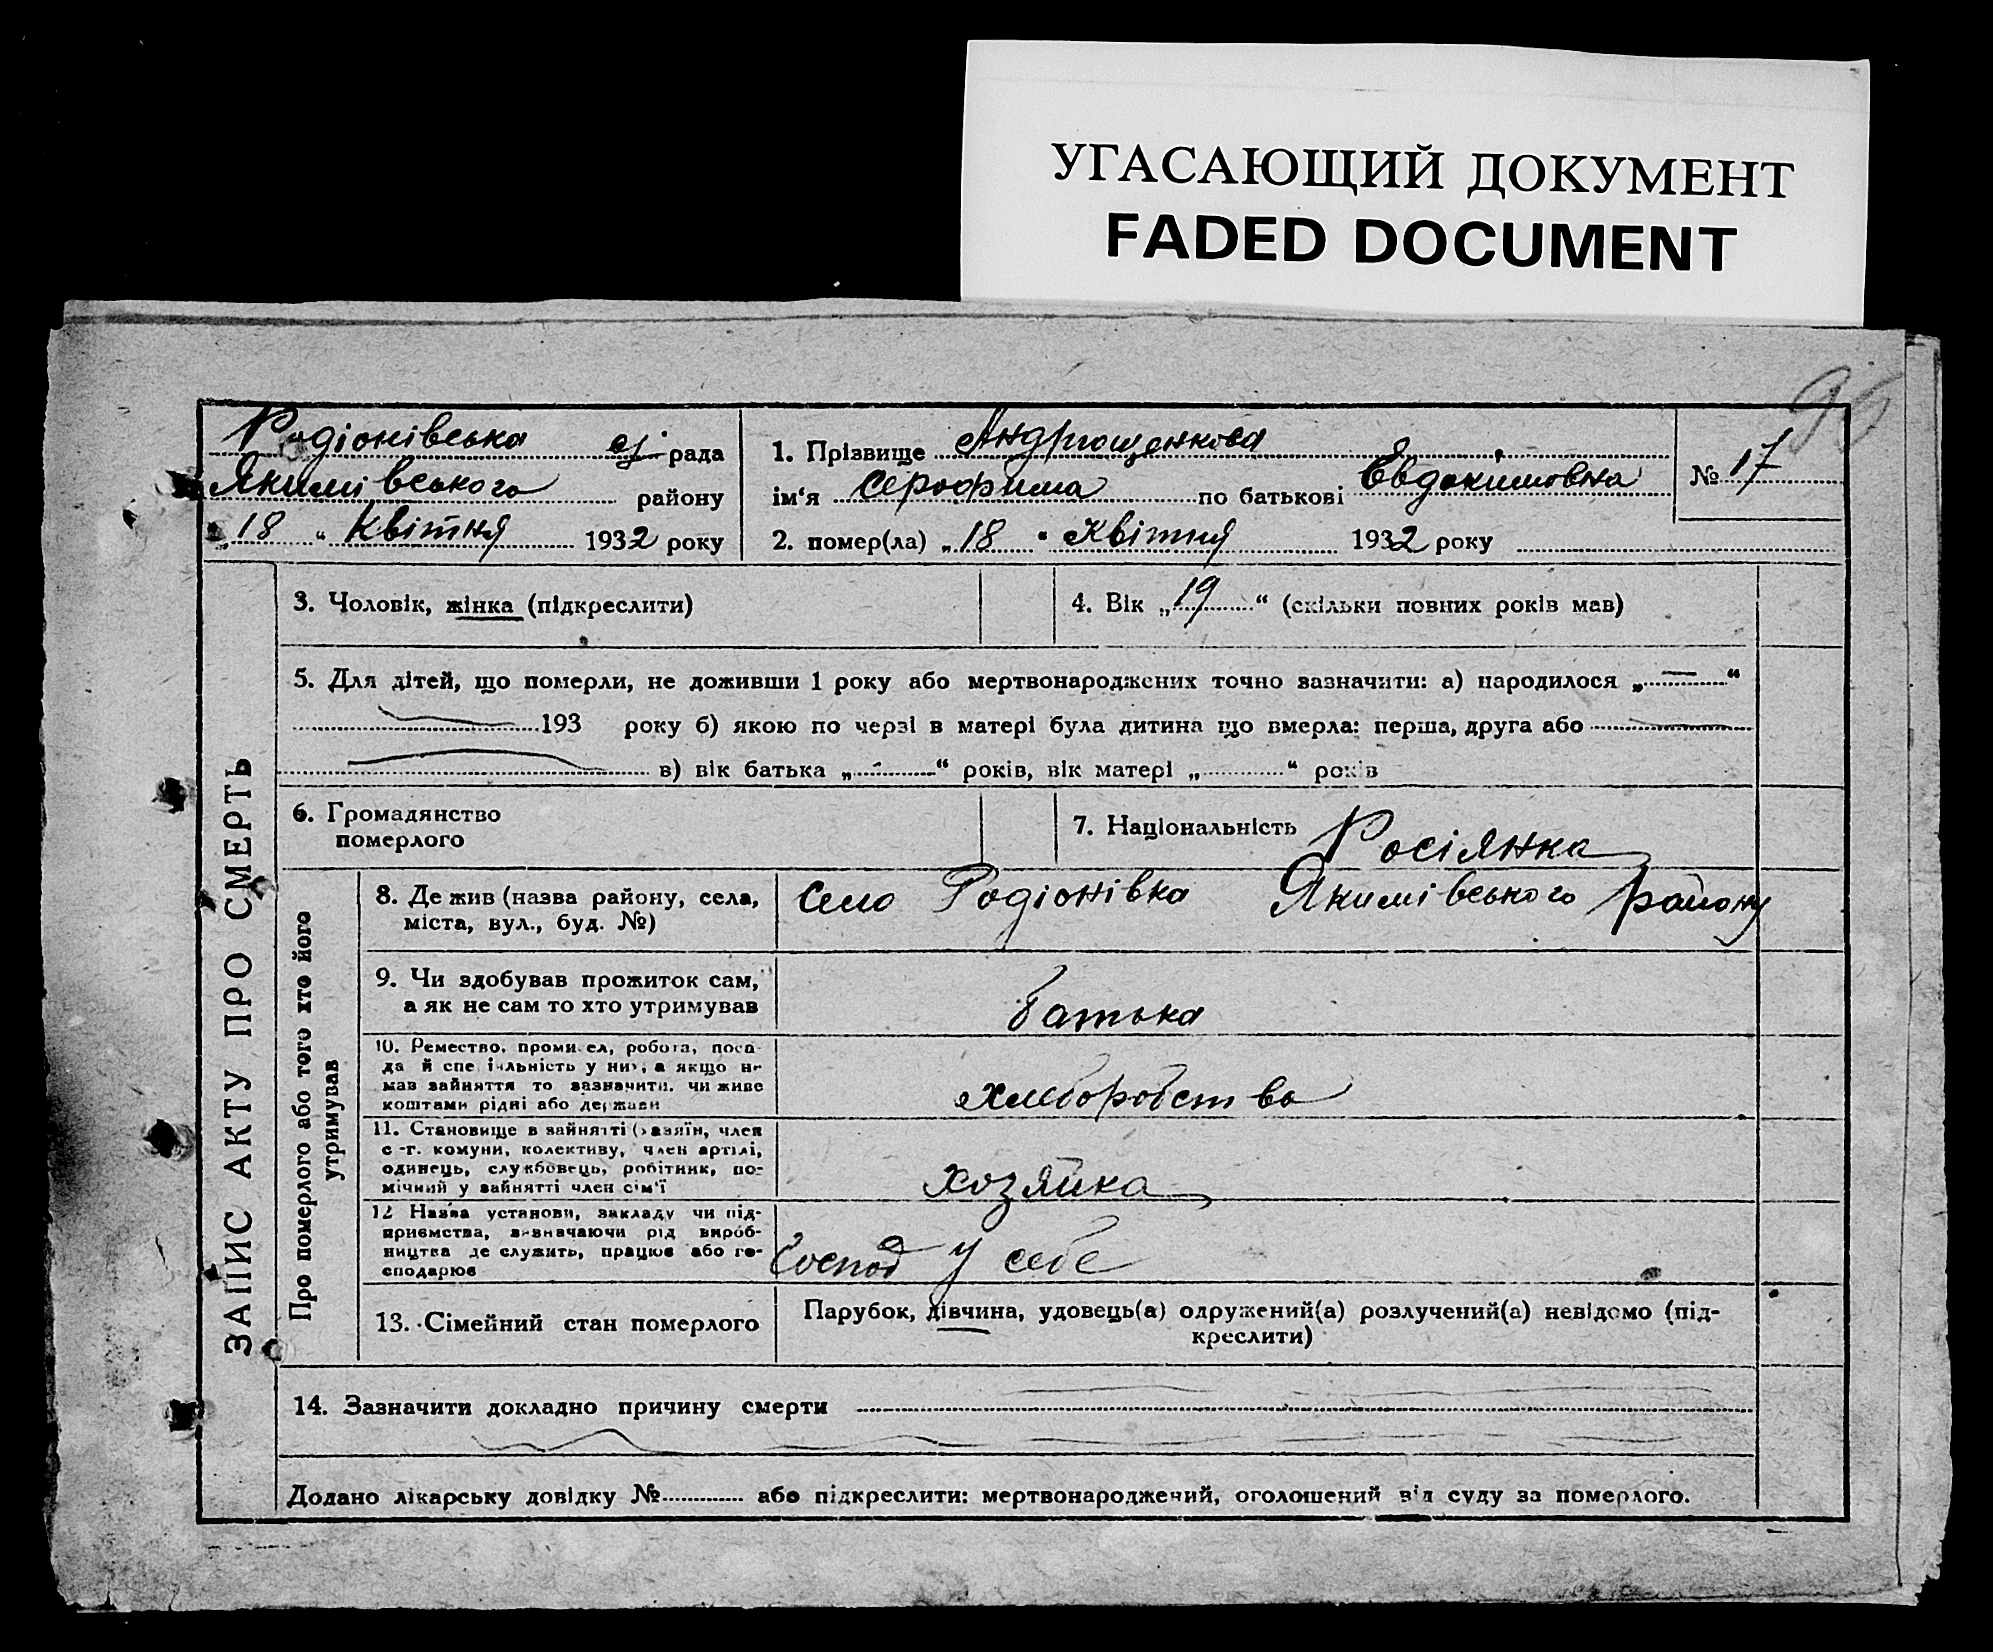 УГАСАЮЩИЙ ДОКУМЕНТ
FADED DOCUMENT
Родіонівська с/ рада
Якимівського району
„18“ Квітня 1932 року
1. Прізвище Андрющенкова
ім‘я Серофима по батькові Евдокимовна
№ 17
2. помер(ла) „18“ Квітня 1932 року
ЗАПИС АКТУ ПРО СМЕРТЬ
3. Чоловік, жінка (підкреслити)
4. Вік „19“ (скільки повних років мав)
5. Для дітей, що померли, не доживши 1 року або мертвонароджених точно зазначити: а) народилося „—“
193 року б) якою по черзі в матері була дитина що вмерла: перша, друга або
в) вік батька „ “ років, вік матері „ “ років
6. Громадянство
померлого
7. Національність Росіянка
Про померлого або того хто його
утримував
8. Де жив (назва району, села,
міста, вул., буд. №)
село Родіонівка Якимівського району
9. Чи здобував прожиток сам,
а як не сам то хто утримував
батька
10. Ремество, промисел, робота, поса-
да й спеціяльність у них, а якщо не
мав зайняття то зазначити, чи живе
коштами рідні або держави
хліборобство
11. Становище в зайнятті (хазяїн, член
с.-г. комуни, колективу, член артілі,
одинець, службовець, робітник, по-
мічний у зайнятті член сім‘ї
хозяйка
12 Назва установи, закладу чи під-
приємства, визначаючи рід вироб-
ництва де служить, працює або го-
сподарює
Господ у себе
13. Сімейний стан померлого
Парубок, дівчина, удовець(а) одружений(а) розлучений(а) невідомо (під-
креслити)
14. Зазначити докладно причину смерти
Додано лікарську довідку № або підкреслити: мертвонароджений, оголошений від суду за померлого.